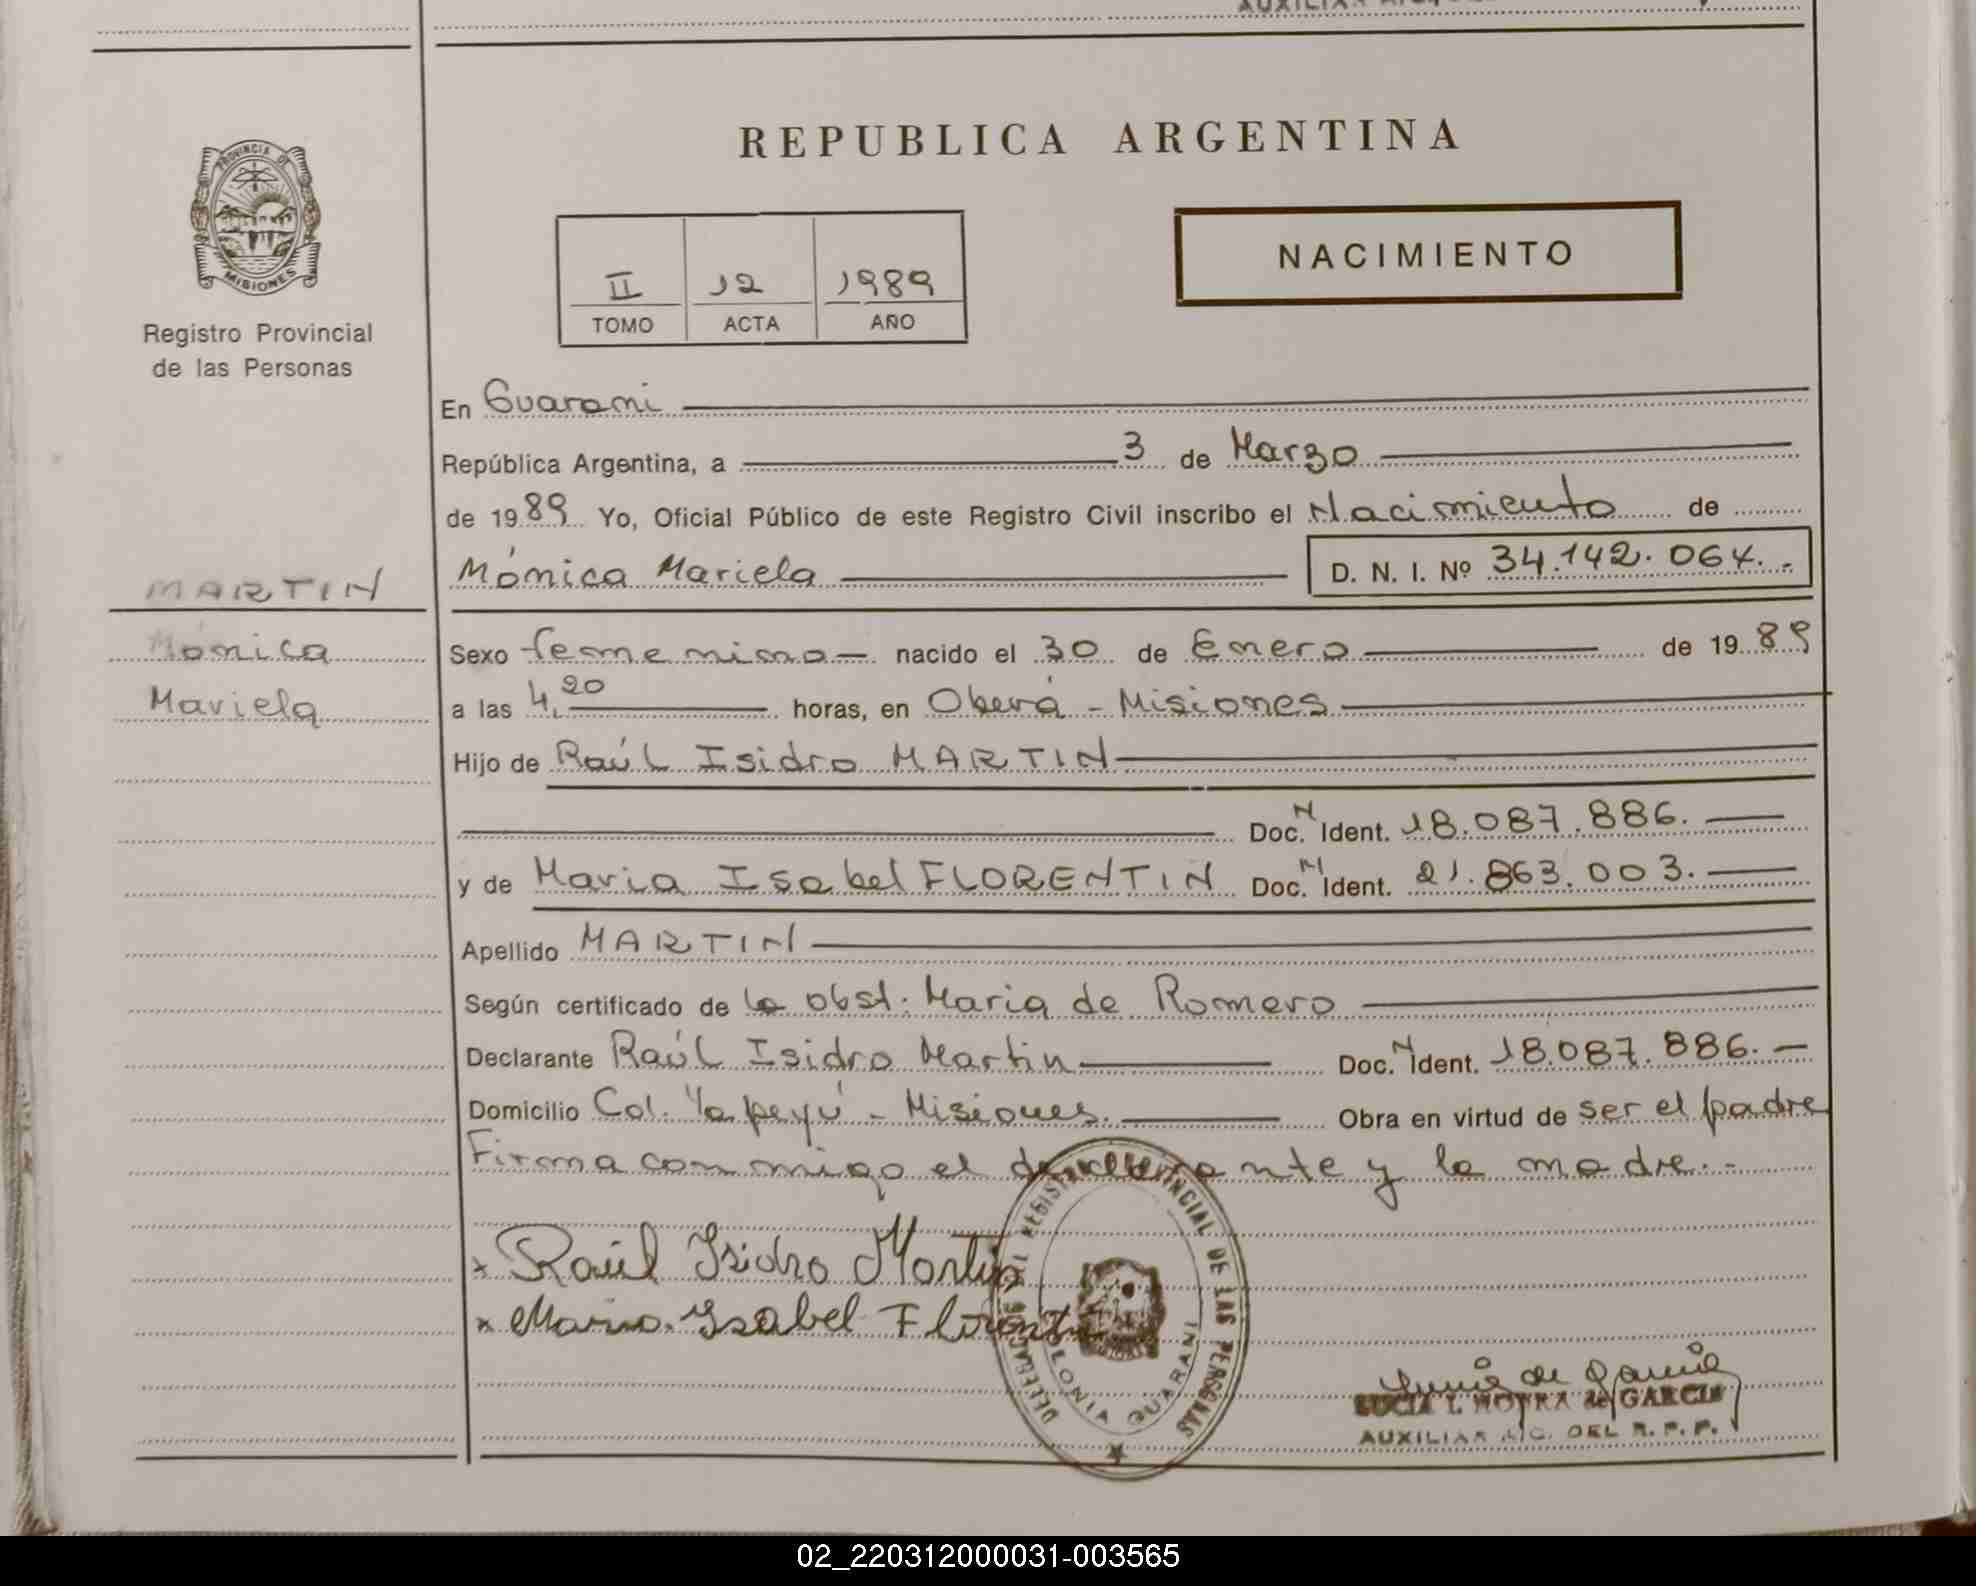 REPUBLICA ARGENTINA
PROVINCIA DE
MISIONES
Registro Provincial
de las Personas
NACIMIENTO
II 12 1989
TOMO ACTA AÑO
En Guarani
República Argentina, a 3 de Marzo
de 1989 Yo, Oficial Público de este Registro Civil inscribo el Nacimiento de
Mónica Mariela D. N. I. Nº 34.142.064.-
MARTIN
Mónica
Mariela
Sexo femenino nacido el 30 de Enero de 1989
a las 4,20 horas, en Oberá - Misiones
Hijo de Raúl Isidro MARTIN
Doc. N Ident. 18.087.886.
y de Maria Isabel FLORENTIN Doc. N Ident. 21.863.003.
Apellido MARTIN
Según certificado de la obst. Maria de Romero
Declarante Raúl Isidro Martin Doc. N Ident. 18.087.886.
Domicilio Col. Yapeyú - Misiones. Obra en virtud de ser el padre
Firma conmigo el declarante y la madre.-
x Raúl Isidro Martin
x Maria Isabel Florentin
REGISTRO PROVINCIAL DE LAS PERSONAS
COLONIA GUARANI
LUCIA de GARCIA
AUXILIAR DEL R. P. P.
02_220312000031-003565